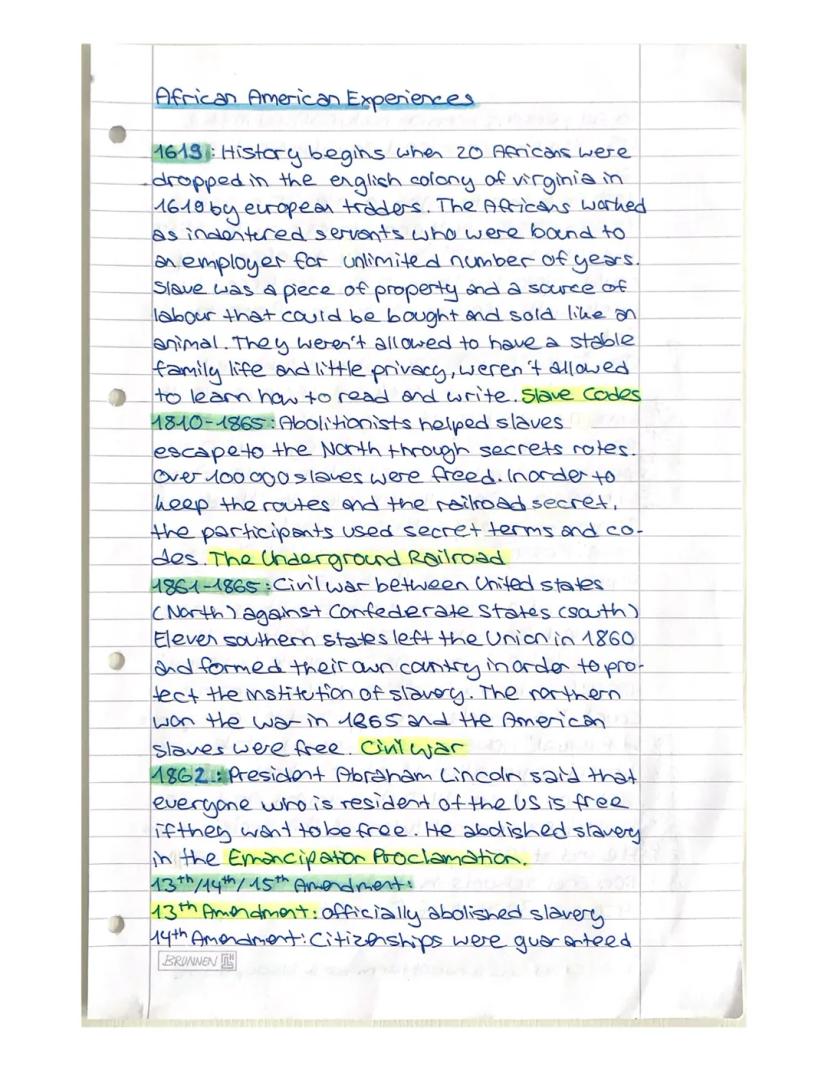 African American Experiences
1619: History begins when 20 Africans were
dropped in the english colony of virginia in
1619 by european traders. The Africans worked
as indentured servants who were bound to
an employer for unlimited number of years.
Slave was a piece of property and a source of
labour that could be bought and sold like an
animal. They weren't allowed to have a stable
family life and little privacy, weren't allowed
to learn how to read and write. Slave Codes
1810-1865: Abolitionists helped slaves
escape to the North through secrets rotes.
Over 100 000 slaves were freed. In order to
keep the routes and the railroad secret,
the participants used secret terms and co-
des. The Underground Railroad
1861-1865: Civil war between United states
(North) against Confederate States (south)
Eleven southern states left the Union in 1860
and formed their own country in order to pro-
tect the institution of slavery. The northern
won the war in 1865 and the American
slaves were free. Civil war
1862: President Abraham Lincoln said that
everyone who is resident of the US is free
if they want to be free. He abolished slavery
in the Emancipation Proclamation.
13th/14th/15th Amendment:
13th Amendment: officially abolished slavery
14th Amendment: Citizenships were guaranteed
BRUNNEN